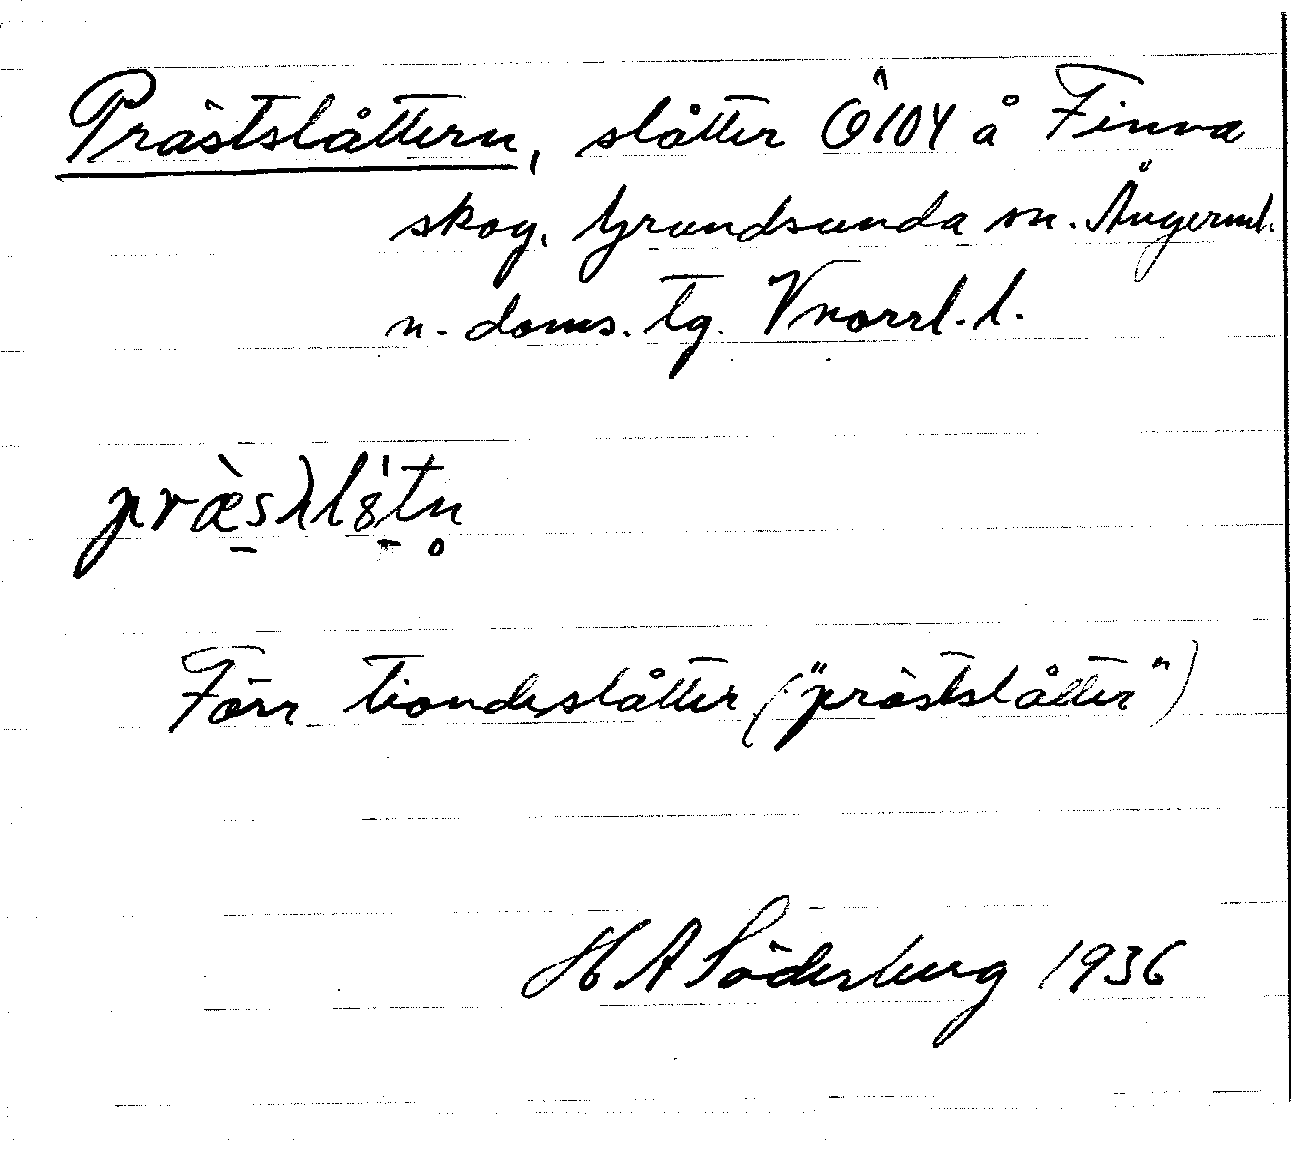 Prästslåttern, slåtter Ö104 å Finna
skog. Grundsunda sn. Ångerml.
n. doms. tg. Vnorrl. l.
Förr tiondeslåtter ("prästslåtter")
H A Söderberg 1936